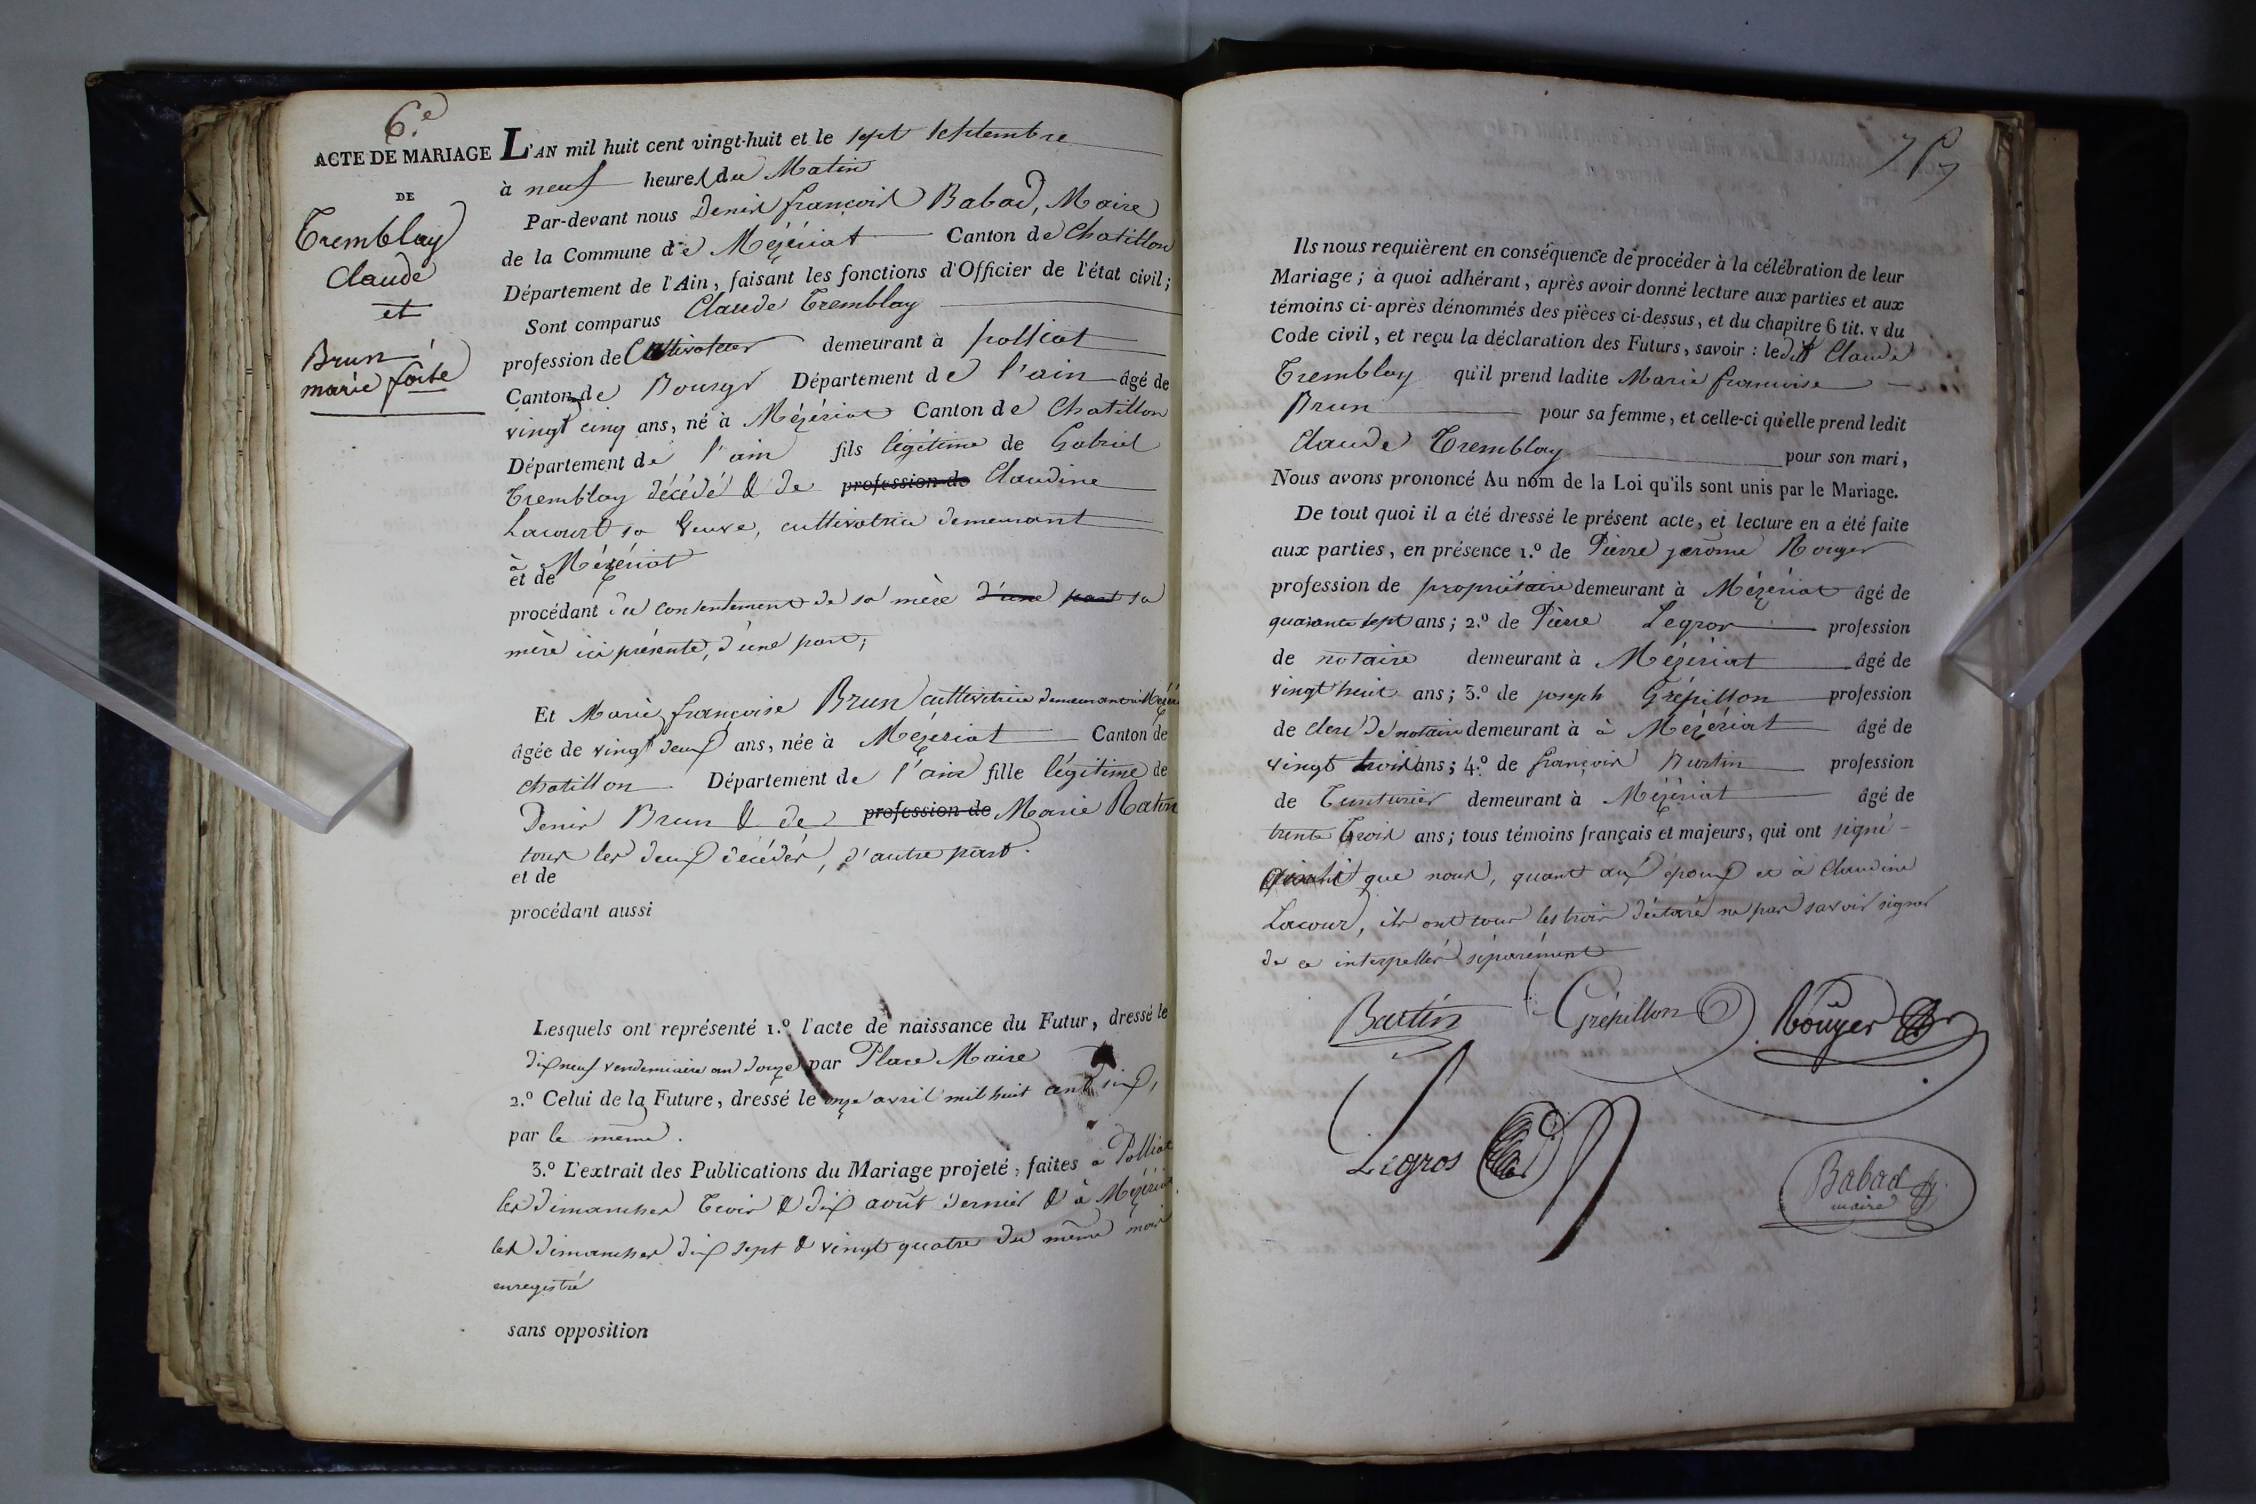 6.e
ACTE DE MARIAGE
DE
Tremblay
Claude
et
Brun
marie f.oise
L'AN mil huit cent vingt-huit et le sept septembre
à neuf heures du Matin
Par-devant nous Denis françois Babad, Maire
de la Commune de Mézériat Canton de Chatillon
Département de l'Ain, faisant les fonctions d'Officier de l'état civil;
Sont comparus Claude Tremblay
profession de Cultivateur demeurant à polliat
Canton de Bourg Département de l'ain âgé de
vingt cinq ans, né à Mézériat Canton de Chatillon
Département de l'ain fils légitime de Gabriel
Tremblay décédé & de profession de Claudine
Lacourt sa Veuve, cultivatrice demeurant
à Mézériat
et de
procédant du consentement de sa mère d'une part sa
mère ici présente, d'une part;
Et Marie françoise Brun cultivatrice demeurant à Mézéri
âgée de vingt deux ans, née à Mézériat Canton de
chatillon Département de l'ain fille légitime de
Denis Brun & de profession de Marie Ratin
tous les deux décédés, d'autre part.
et de
procédant aussi
Lesquels ont représenté 1.º l'acte de naissance du Futur, dressé le
dix neuf vendemiaire an douze par Place Maire
2.º Celui de la Future, dressé le onze avril mil huit cent six,
par le même.
3.º L'extrait des Publications du Mariage projeté, faites à Polliat
les dimanches trois & dix août dernier & à Mézériat
les dimanches dix sept & vingt quatre du même mois
enregistré
sans opposition
Ils nous requièrent en conséquence de procéder à la célébration de leur
Mariage; à quoi adhérant, après avoir donné lecture aux parties et aux
témoins ci-après dénommés des pièces ci-dessus, et du chapitre 6 tit. v du
Code civil, et reçu la déclaration des Futurs, savoir : ledit Claude
Tremblay qu'il prend ladite Marie françoise
Brun pour sa femme, et celle-ci qu'elle prend ledit
Claude Tremblay pour son mari,
Nous avons prononcé Au nom de la Loi qu'ils sont unis par le Mariage.
De tout quoi il a été dressé le présent acte, et lecture en a été faite
aux parties, en présence 1.º de Pierre jerôme Rouyer
profession de propriétaire demeurant à Mézériat âgé de
quarante sept ans; 2.º de Pierre Legros profession
de notaire demeurant à Mézériat âgé de
vingt huit ans; 3.º de joseph Grépillon profession
de clerc de notaire demeurant à à Mézériat âgé de
vingt trois ans; 4.º de françois Burtin profession
de Teinturier demeurant à Mézériat âgé de
trente trois ans; tous témoins français et majeurs, qui ont signé
que nous, quant aux époux et à Claudine
Lacour, ils ont tous les trois déclaré ne pas savoir signer
de ce interpellés séparément
Burtin Grépillon Rouyer
Legros
Babad
maire